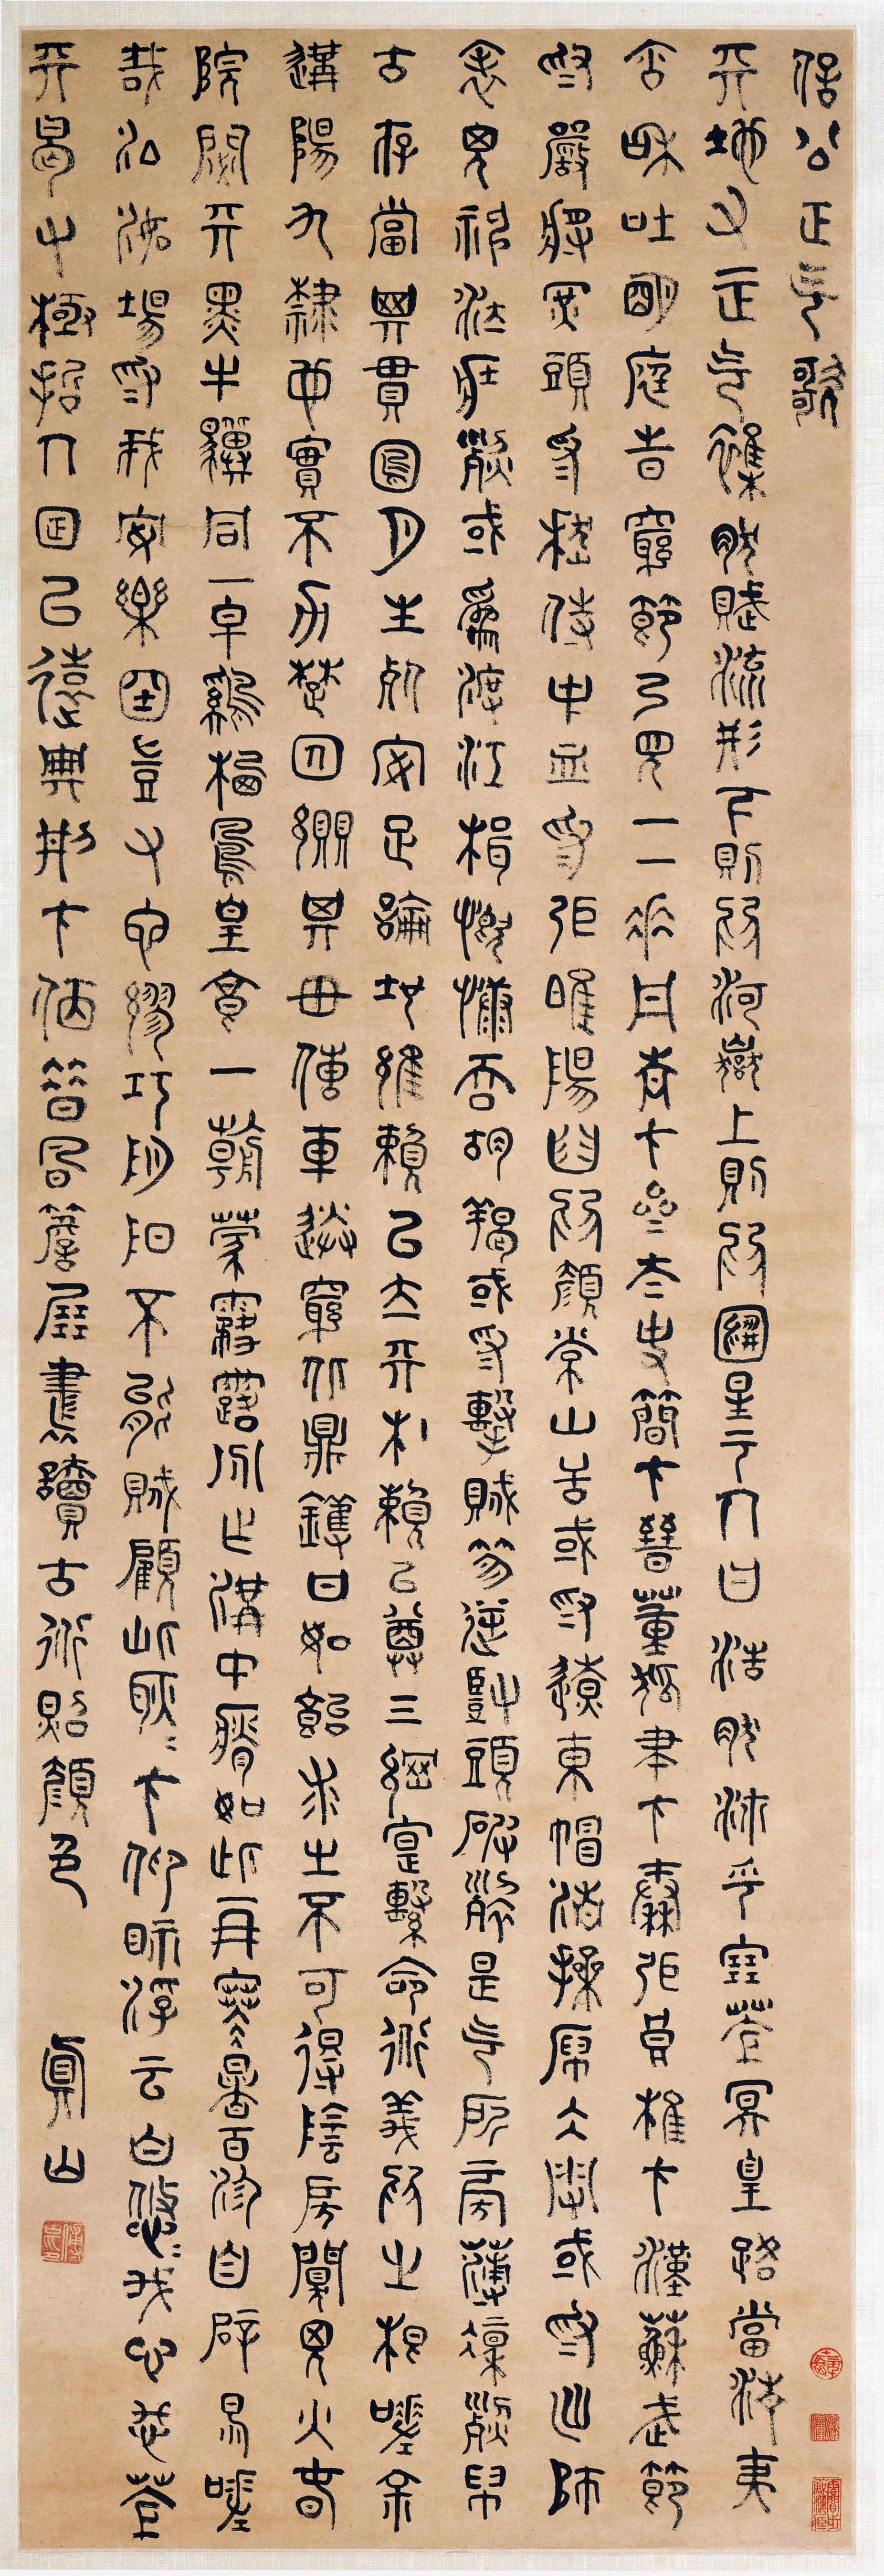 信公正气歌
天地有正气雜然賦流形下則爲河嶽上則爲日星于人曰浩然沛乎塞蒼冥皇路當清夷
含和吐明庭時窮節乃見一一垂丹青在齊太史簡在晉董狐筆在秦張良椎在漢蘇武節
爲嚴將軍頭爲嵇侍中血爲張睢陽齒爲顏常山舌或爲遼東帽清操厲冰雪或爲出師
表鬼神泣壯烈或爲渡江楫慷慨吞胡羯或爲擊賊笏逆豎頭破裂是气所旁薄凜烈萬
古存當其貫日月生死安足論地維賴以立天柱賴以尊三綱實繫命道義爲之根嗟余
遘陽九隸也實不力楚囚纓其冠傳車送窮北鼎鑊甘如飴求之不可得陰房闃鬼火春
院閟天黑牛驥同一皁雞棲鳳皇食一朝蒙霧露分作溝中瘠如此再寒暑百沴自辟易嗟
哉沮洳場爲我安樂國豈有它繆巧陰陽不能賊顧此耿耿在仰視浮云白悠悠我心悲蒼
天曷有極哲人日已遠典刑在夙昔風簷展書讀古道照顏色
真山